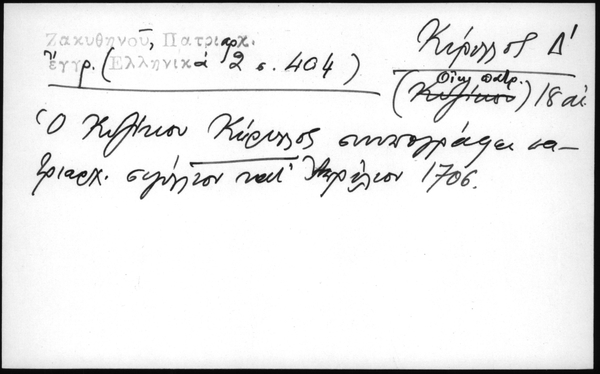 Ζακυθηνοῦ, Πατριαρχ.
ἔγγρ. (Ἑλληνικά 2 σ. 404)
Κύριλλος Δ'
Οἰκ. πατρ.
(Κυζίκου) 18 αἰ.
Ὁ Κυζίκου Κύριλλος συνυπογράφει πα-
τριαρχ. σιγίλλιον κατ' Ἀπρίλιον 1706.